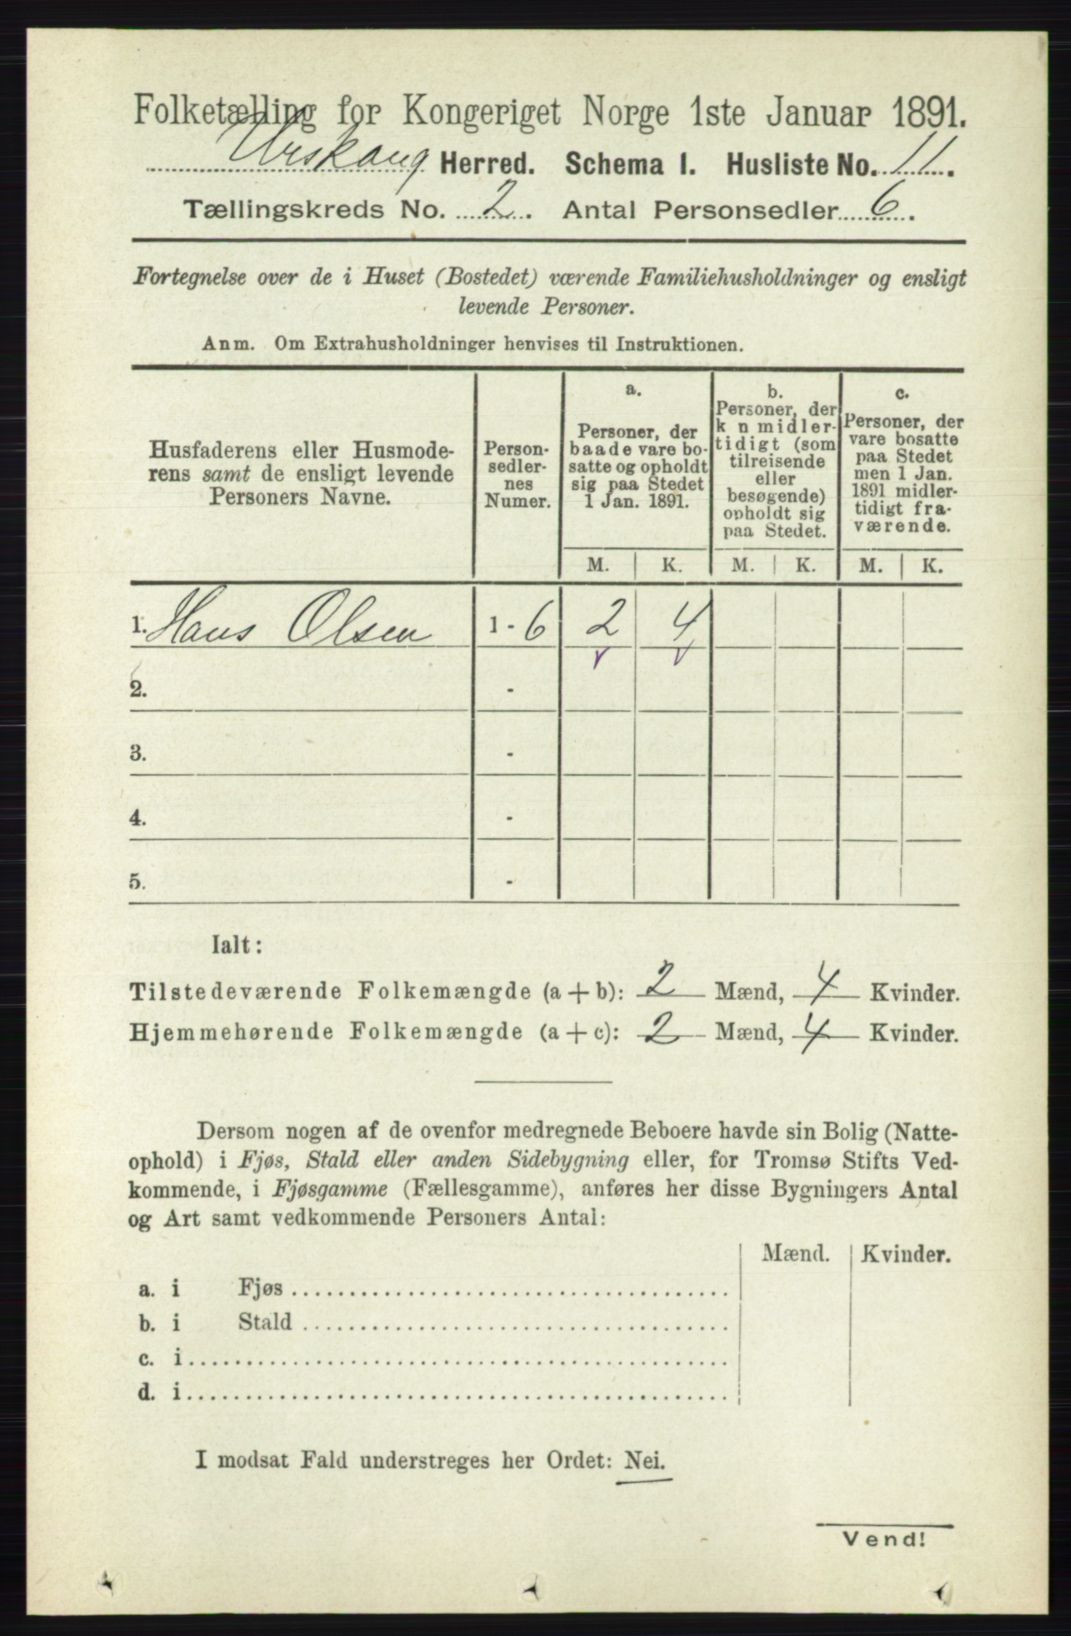 Folketælling for Kongeriget Norge 1ste Januar 1891.
Urskoug Herred. Schema I. Husliste No. 11.
Tællingskreds No. 2. Antal Personsedler 6.
Fortegnelse over de i Huset (Bostedet) værende Familiehusholdninger og ensligt
levende Personer.
Anm. Om Extrahusholdninger henvises til Instruktionen.
Husfaderens eller Husmode-
rens samt de ensligt levende
Personers Navne.
Person-
sedler-
nes
Numer.
a.
Personer, der
baade vare bo-
satte og opholdt
sig paa Stedet
1 Jan. 1891.
b.
Personer, der
k n midler-
tidigt (som
tilreisende
eller
besøgende)
opholdt sig
paa Stedet.
c.
Personer, der
vare bosatte
paa Stedet
men 1 Jan.
1891 midler-
tidigt fra-
værende.
M. K. M. K. M. K.
1. Hans Olsen 1 - 6 2 4
2. -
3. -
4. -
5. -
Ialt:
Tilstedeværende Folkemængde (a + b): 2 Mænd, 4 Kvinder.
Hjemmehørende Folkemængde (a + c): 2 Mænd, 4 Kvinder.
Dersom nogen af de ovenfor medregnede Beboere havde sin Bolig (Natte-
ophold) i Fjøs, Stald eller anden Sidebygning eller, for Tromsø Stifts Ved-
kommende, i Fjøsgamme (Fællesgamme), anføres her disse Bygningers Antal
og Art samt vedkommende Personers Antal:
Mænd. Kvinder.
a. i Fjøs
b. i Stald
c. i
d. i
I modsat Fald understreges her Ordet: Nei.
Vend!